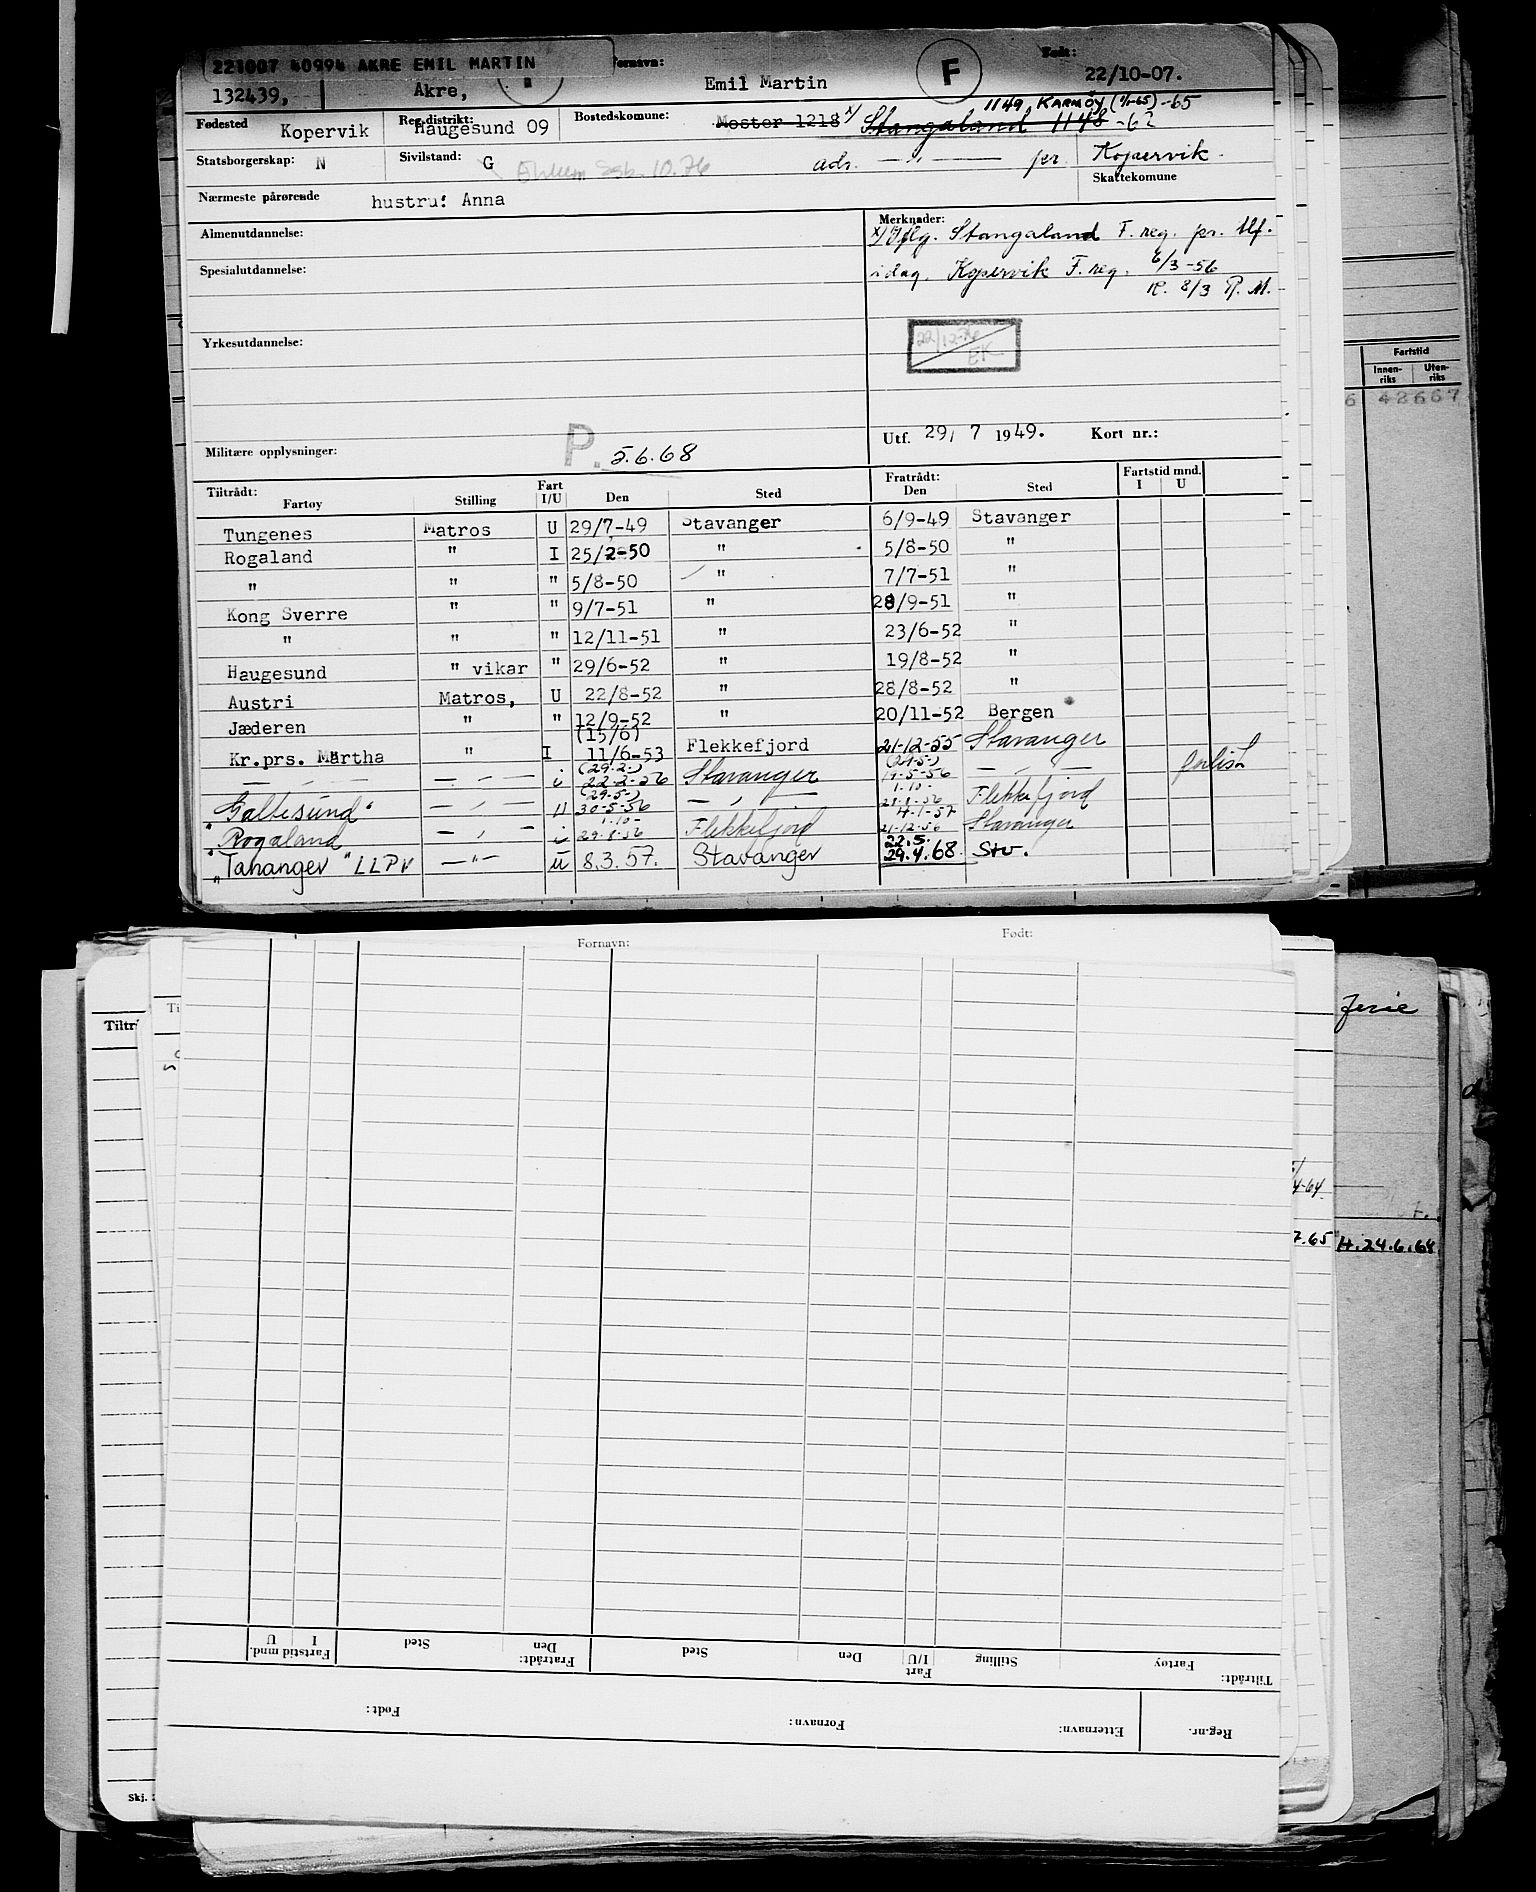 221007 40994 AKRE EMIL MARTIN Fornavn: Født:
132439, Åkre, Emil Martin F 22/10-07.
1149 KARMØY (1/1-65) -65
Fødested Kopervik Reg.distrikt: Haugesund 09 Bostedskomune: Moster 1218 x) Stangaland 1148 -62
Statsborgerskap: N Sivilstand: G 10.76 adr. — " — pr. Kopervik.
Skattekomune
Nærmeste pårørende hustru: Anna
Almenutdannelse: Merknader:
x) Iflg. Stangaland F. reg. pr. tlf.
Spesialutdannelse: idag. Kopervik F. reg. 6/3-56
R. 8/3 P. M.
Yrkesutdannelse: 22/12-76
EK
Militære opplysninger: P. 5.6.68 Utf. 29/ 7 1949. Kort nr.:
Tiltrådt: Fratrådt: Fartstid mnd.
Fartøy Stilling Fart I/U Den Sted Den Sted I U
Tungenes Matros U 29/7-49 Stavanger 6/9-49 Stavanger
Rogaland " I 25/2-50 " 5/8-50 "
" " " 5/8-50 " 7/7-51 "
Kong Sverre " " 9/7-51 " 28/9-51 "
" " " 12/11-51 " 23/6-52 "
Haugesund " vikar " 29/6-52 " 19/8-52 "
Austri Matros, U 22/8-52 " 28/8-52 "
Jæderen " " 12/9-52 " 20/11-52 Bergen
(15/6)
Kr.prs. Märtha " I 11/6-53 Flekkefjord 21-12-55 Stavanger
(29.2.) (24-5-)
— " — — " — i 22-2-56 Stavanger 14-5-56 — " — forlist
(29-5-) 1.10-
"Galtesund" — " — U 30-5-56 — " — 29-8-56 Flekkefjord
1.10- 4-1-57
"Rogaland — " — i 29-8-56 Flekkefjord 21-12-56 Stavanger
22.5.
"Tananger" LLPV — " — u 8.3.57. Stavanger 29.4.68. Stv.
Fartstid
Innen-
riks Uten-
riks
6 42667
Fornavn: Født:
Tiltr
Ti
Ferie
4-64.
7.65 H.24.6.68
Tiltrådt: Fratrådt: Fartstid mnd.
Fartøy Stilling Fart I/U Den Sted Den Sted I U
Reg.nr. Etternavn: Fornavn: Født:
Skj. :